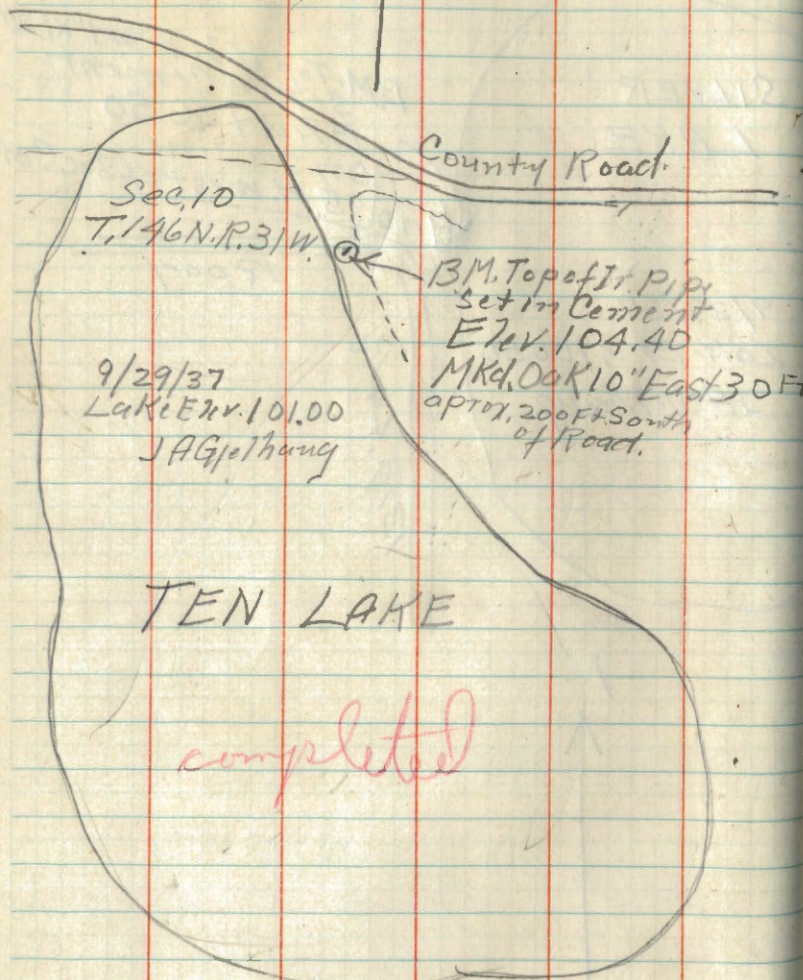 County Road.
Sec. 10
T. 146 N. R. 31 W
B.M. Top of Ir. Pipe
Set in Cement
Elev. 104.40
Mkd. Oak 10" East 30 Ft
aprox. 200 Ft South
of Road.
9/29/37
Lake Elev. 101.00
J A Gjelhaug
TEN LAKE
completed